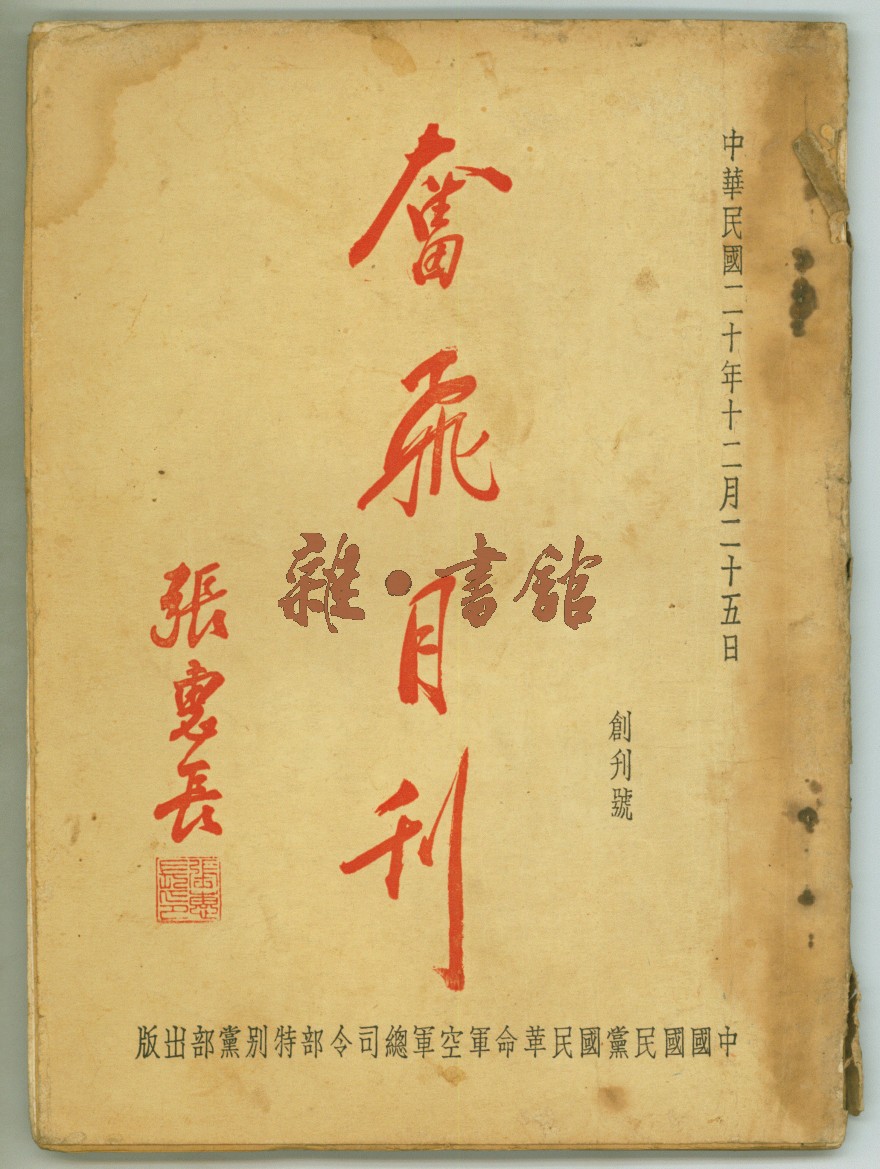 中華民國二十年十二月二十五日
創刊號
奮飛月刊
張惠長
張惠長印
中國國民黨國民革命軍空軍總司令部特別黨部出版
雜·書館